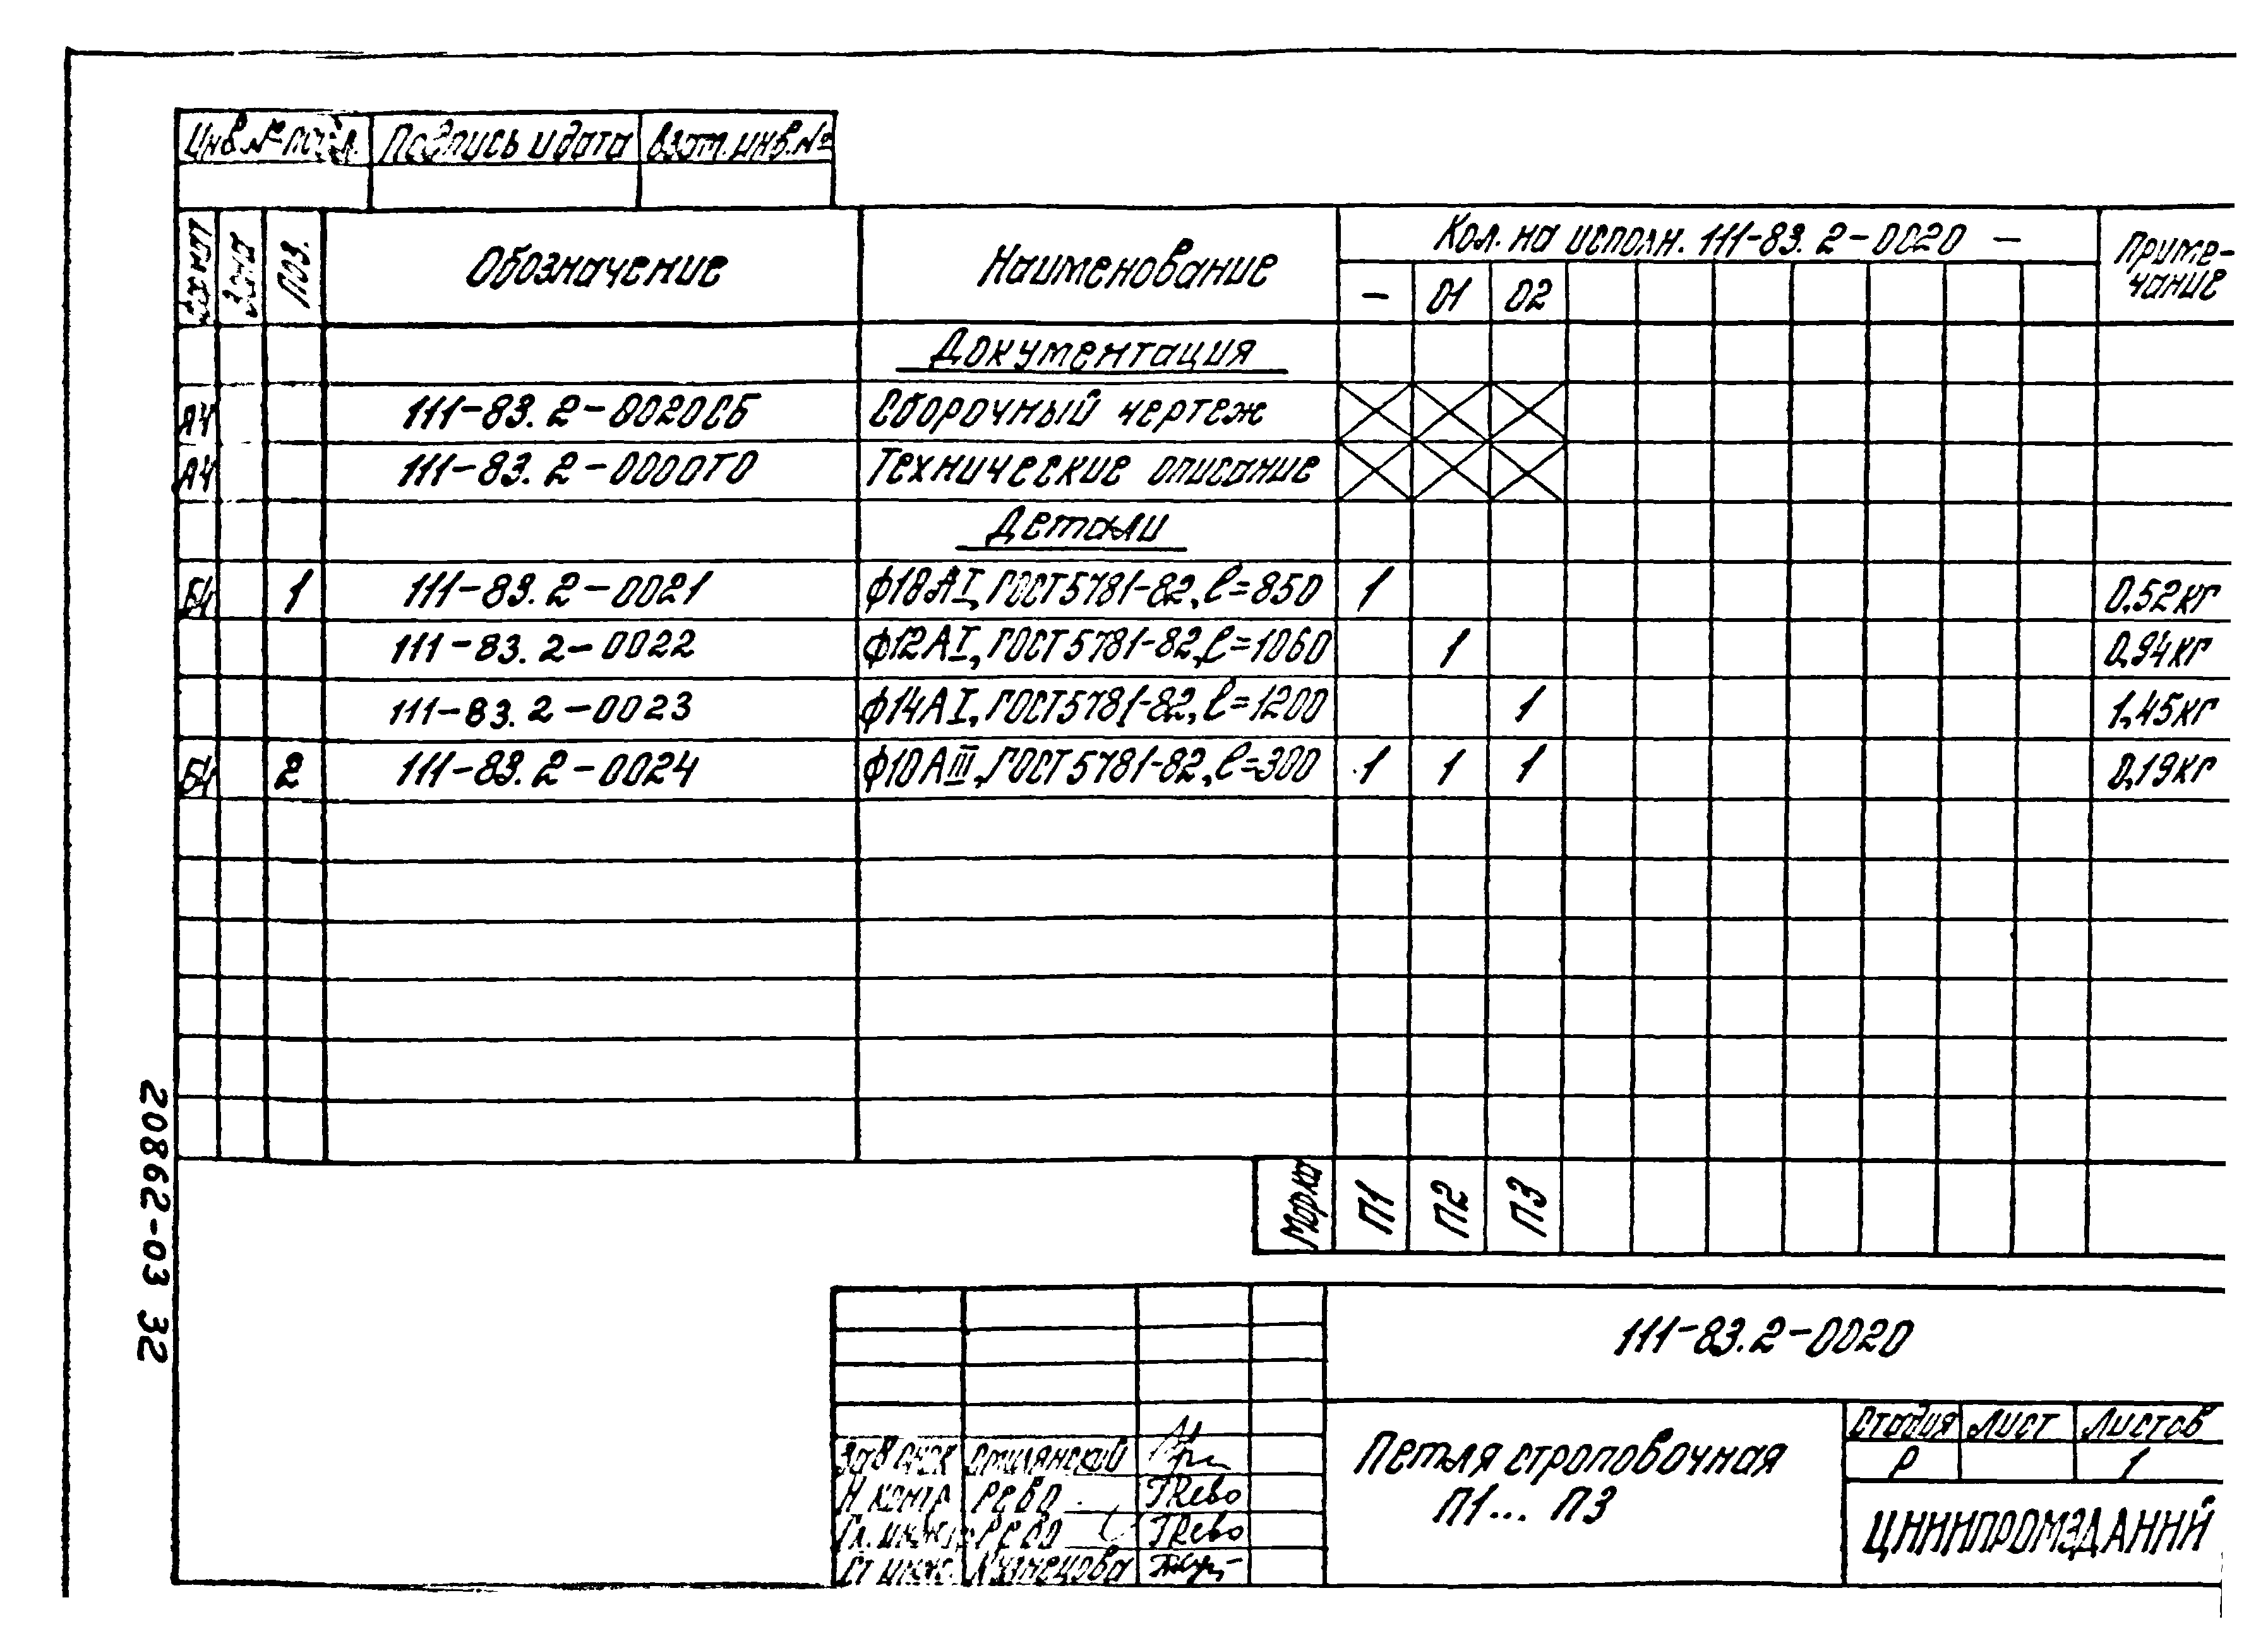 Инв.№ подл. Подпись и дата Взам. инв.№
Формат Зона Поз. Обозначение Наименование Кол. на исполн. 111-83.2-0020 — Приме-чание
— 01 02
Документация
А4 111-83.2-0020СБ Сборочный чертеж
А4 111-83.2-0000ТО Технические описание
Детали
Б4 1 111-83.2-0021 ф10АI, ГОСТ 5781-82, ℓ=850 1 0,52кг
111-83.2-0022 ф12АI, ГОСТ 5781-82, ℓ=1060 1 0,94кг
111-83.2-0023 ф14АI, ГОСТ 5781-82, ℓ=1200 1 1,45кг
Б4 2 111-83.2-0024 ф10АIII, ГОСТ 5781-82, ℓ=300 1 1 1 0,19кг
Марка П1 П2 П3
20862-03 32
111-83.2-0020
Петля строповочная
П1... П3
Стадия Лист Листов
Р 1
ЦНИИПРОМЗДАНИЙ
Зав
Н контр Рево
Гл. инж. Рево
Ст инж. Кузнецова